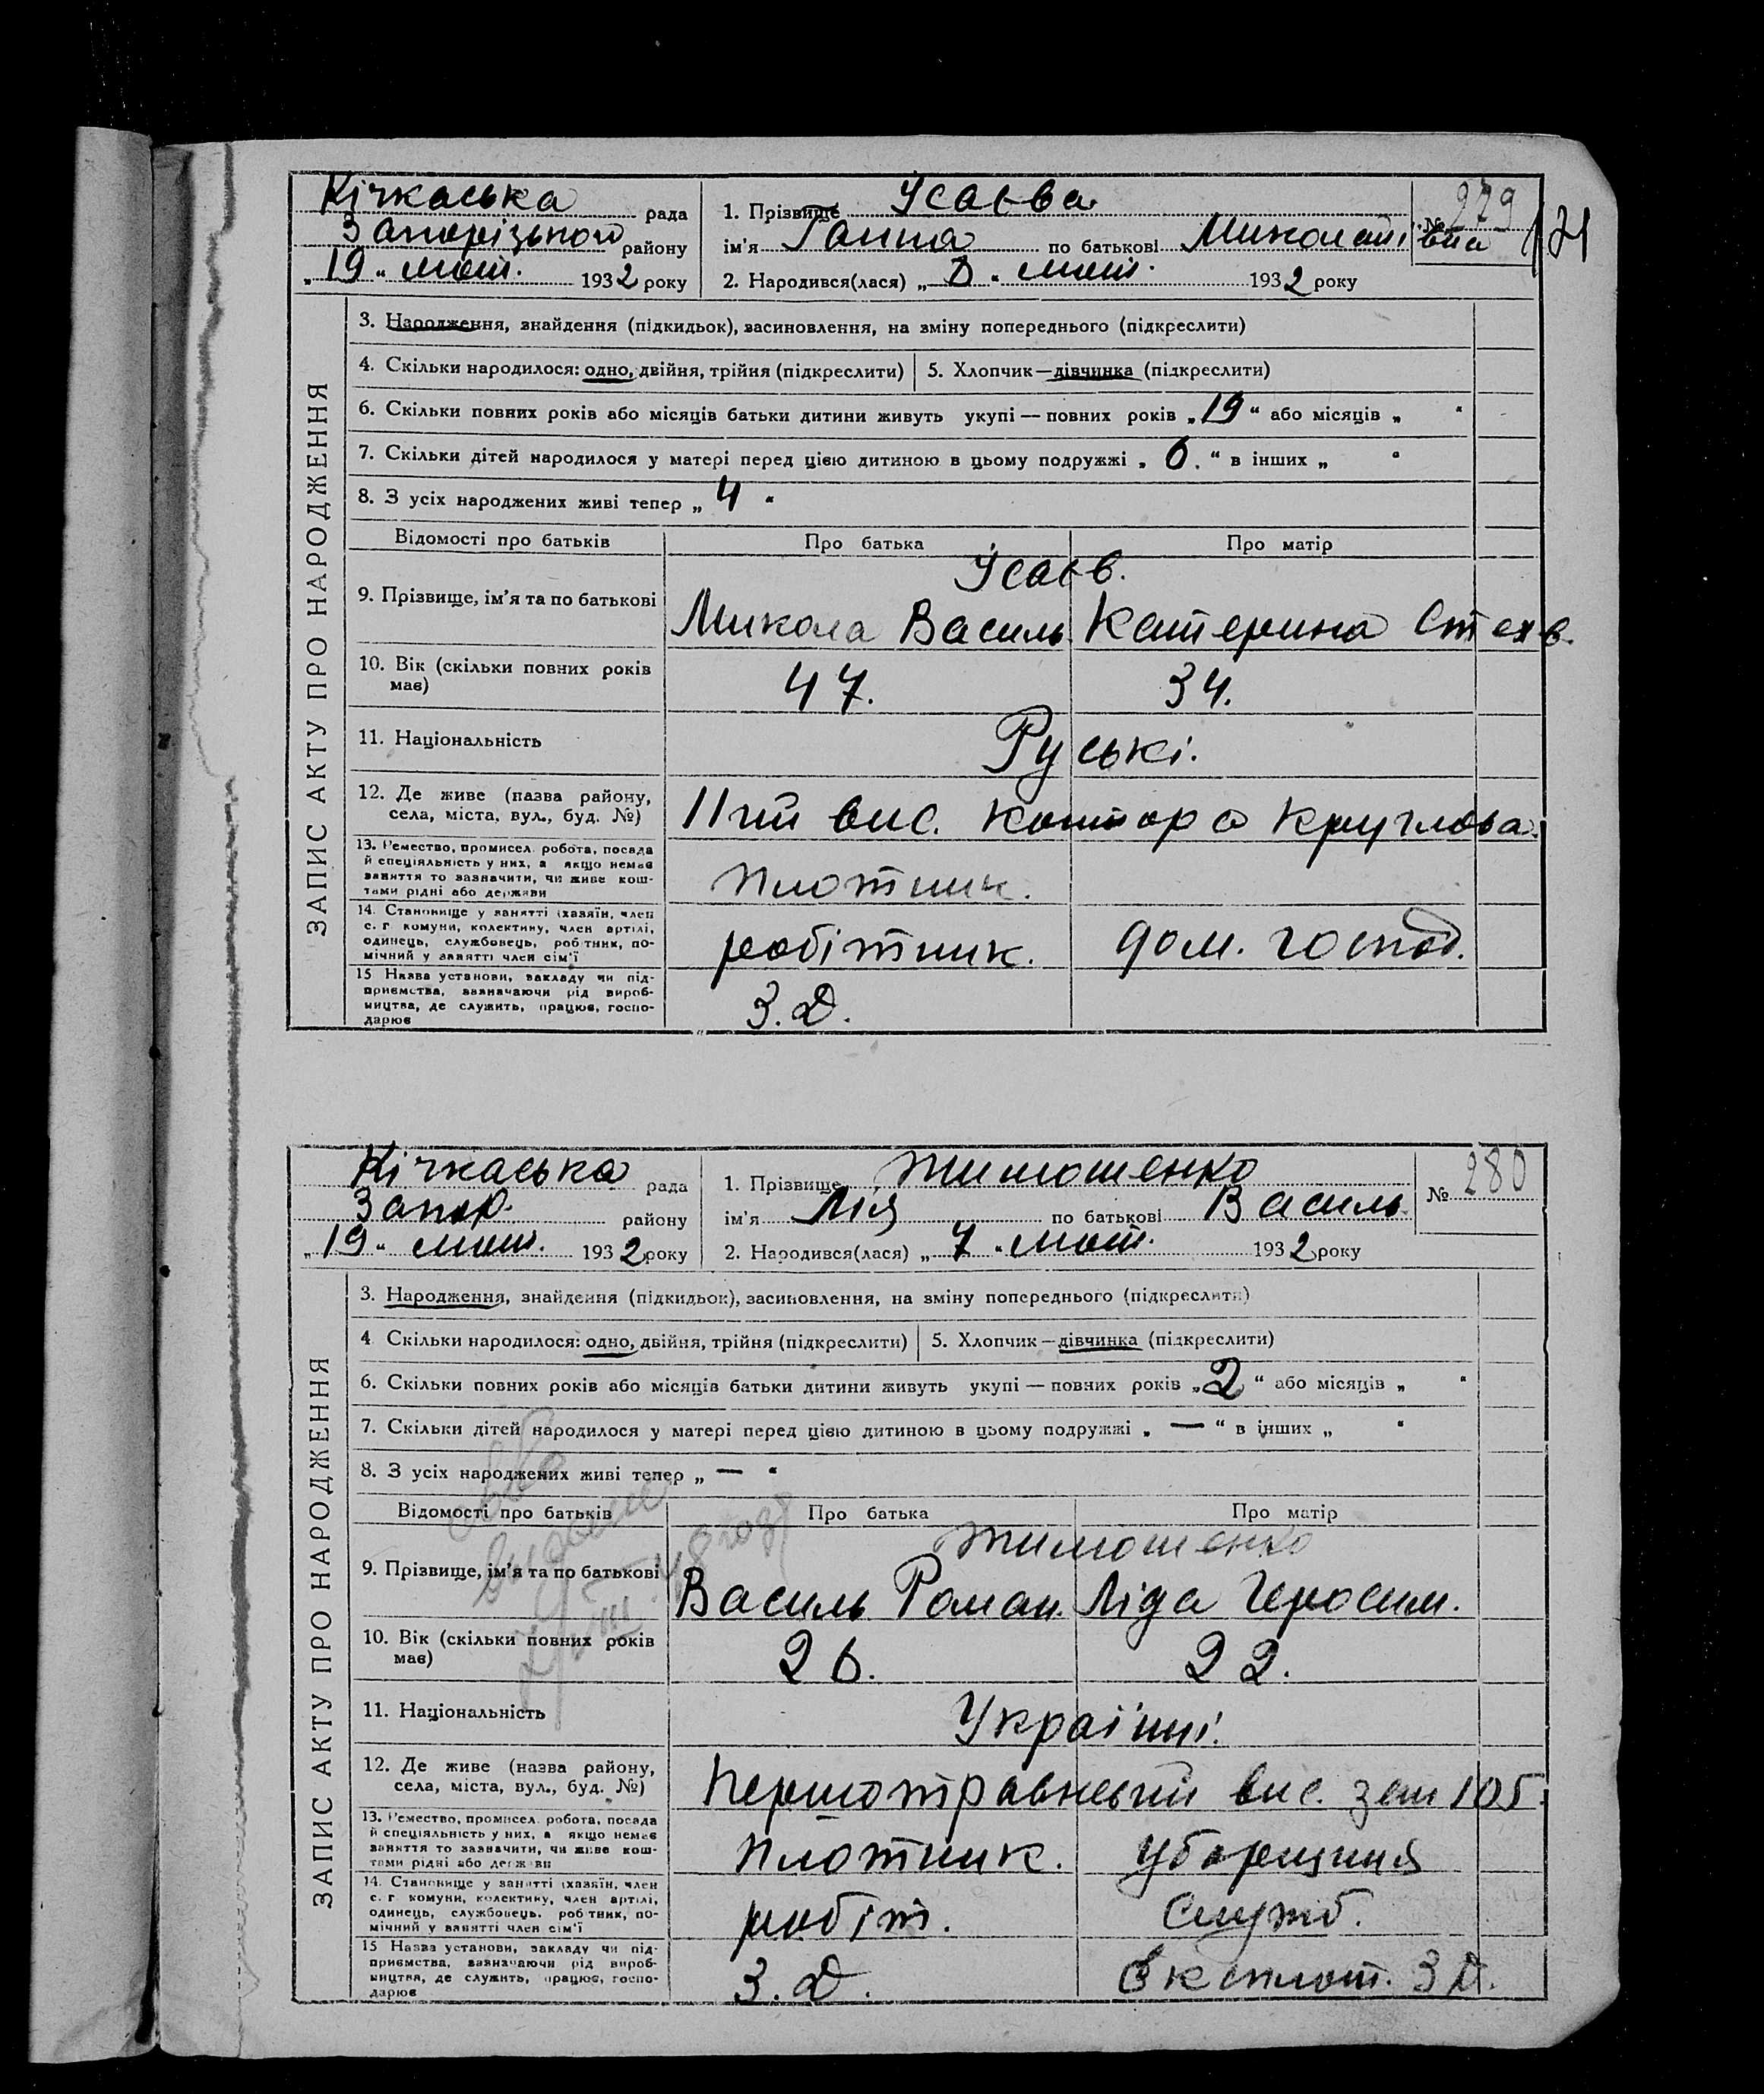 Кічкаська рада
Запорізького району
„19“ лют. 1932 року
1. Прізвище Усаєва
ім'я Ганна по батькові Миколаївна
2. Народився(лася) „ “ лют. 1932 року
№ 279
ЗАПИС АКТУ ПРО НАРОДЖЕННЯ
3. Народження, знайдення (підкидьок), засиновлення, на зміну попереднього (підкреслити)
4. Скільки народилося: одно, двійня, трійня (підкреслити) 5. Хлопчик—дівчинка (підкреслити)
6. Скільки повних років або місяців батьки дитини живуть укупі — повних років „19“ або місяців „ “
7. Скільки дітей народилося у матері перед цією дитиною в цьому подружжі „6.“ в інших „ “
8. З усіх народжених живі тепер „4“
Відомості про батьків Про батька Про матір
9. Прізвище, ім'я та по батькові Усаєв.
Микола Василь. Катерина
10. Вік (скільки повних років має) 47. 34.
11. Національність Руські.
12. Де живе (назва району, села, міста, вул., буд. №) 11ий вис. контора Круглова.
13. Ремество, промисел, робота, посада й спеціяльність у них, а якщо немає заняття то зазначити, чи живе коштами рідні або держави Плотник.
14. Становище у занятті (хазяїн, член с.г комуни, колективу, член артілі, одинець, службовець, робітник, помічний у занятті член сім'ї робітник. дом. господ.
15 Назва установи, закладу чи підприємства, зазначаючи рід виробництва, де служить, працює, господарює З.Д.
Кічкаська рада
Запор. району
„19“ лют. 1932 року
1. Прізвище Тимошенко
ім'я Лія по батькові Василь.
2. Народився(лася) „7“ лют. 1932 року
№ 280
ЗАПИС АКТУ ПРО НАРОДЖЕННЯ
3. Народження, знайдення (підкидьок), засиновлення, на зміну попереднього (підкреслити)
4 Скільки народилося: одно, двійня, трійня (підкреслити) 5. Хлопчик—дівчинка (підкреслити)
6. Скільки повних років або місяців батьки дитини живуть укупі — повних років „2“ або місяців „ “
7. Скільки дітей народилося у матері перед цією дитиною в цьому подружжі „—“ в інших „ “
8. З усіх народжених живі тепер „—“
Відомості про батьків Про батька Про матір
9. Прізвище, ім'я та по батькові Тимошенко
Василь Роман. Ліда Геросим.
10. Вік (скільки повних років має) 26. 22.
11. Національність Українці.
12. Де живе (назва району, села, міста, вул., буд. №) Першотравневий вис. зем 105.
13. Ремество, промисел, робота, посада й спеціяльність у них, а якщо немає заняття то зазначити, чи живе коштами рідні або держави Плотник. уборщиця
14. Становище у занятті (хазяїн, член с. г комуни, колективу, член артілі, одинець, службовець, робітник, помічний у занятті член сім'ї робіт. Служб.
15 Назва установи, закладу чи підприємства, зазначаючи рід виробництва, де служить, працює, господарює З.Д. Експлот. З Д.